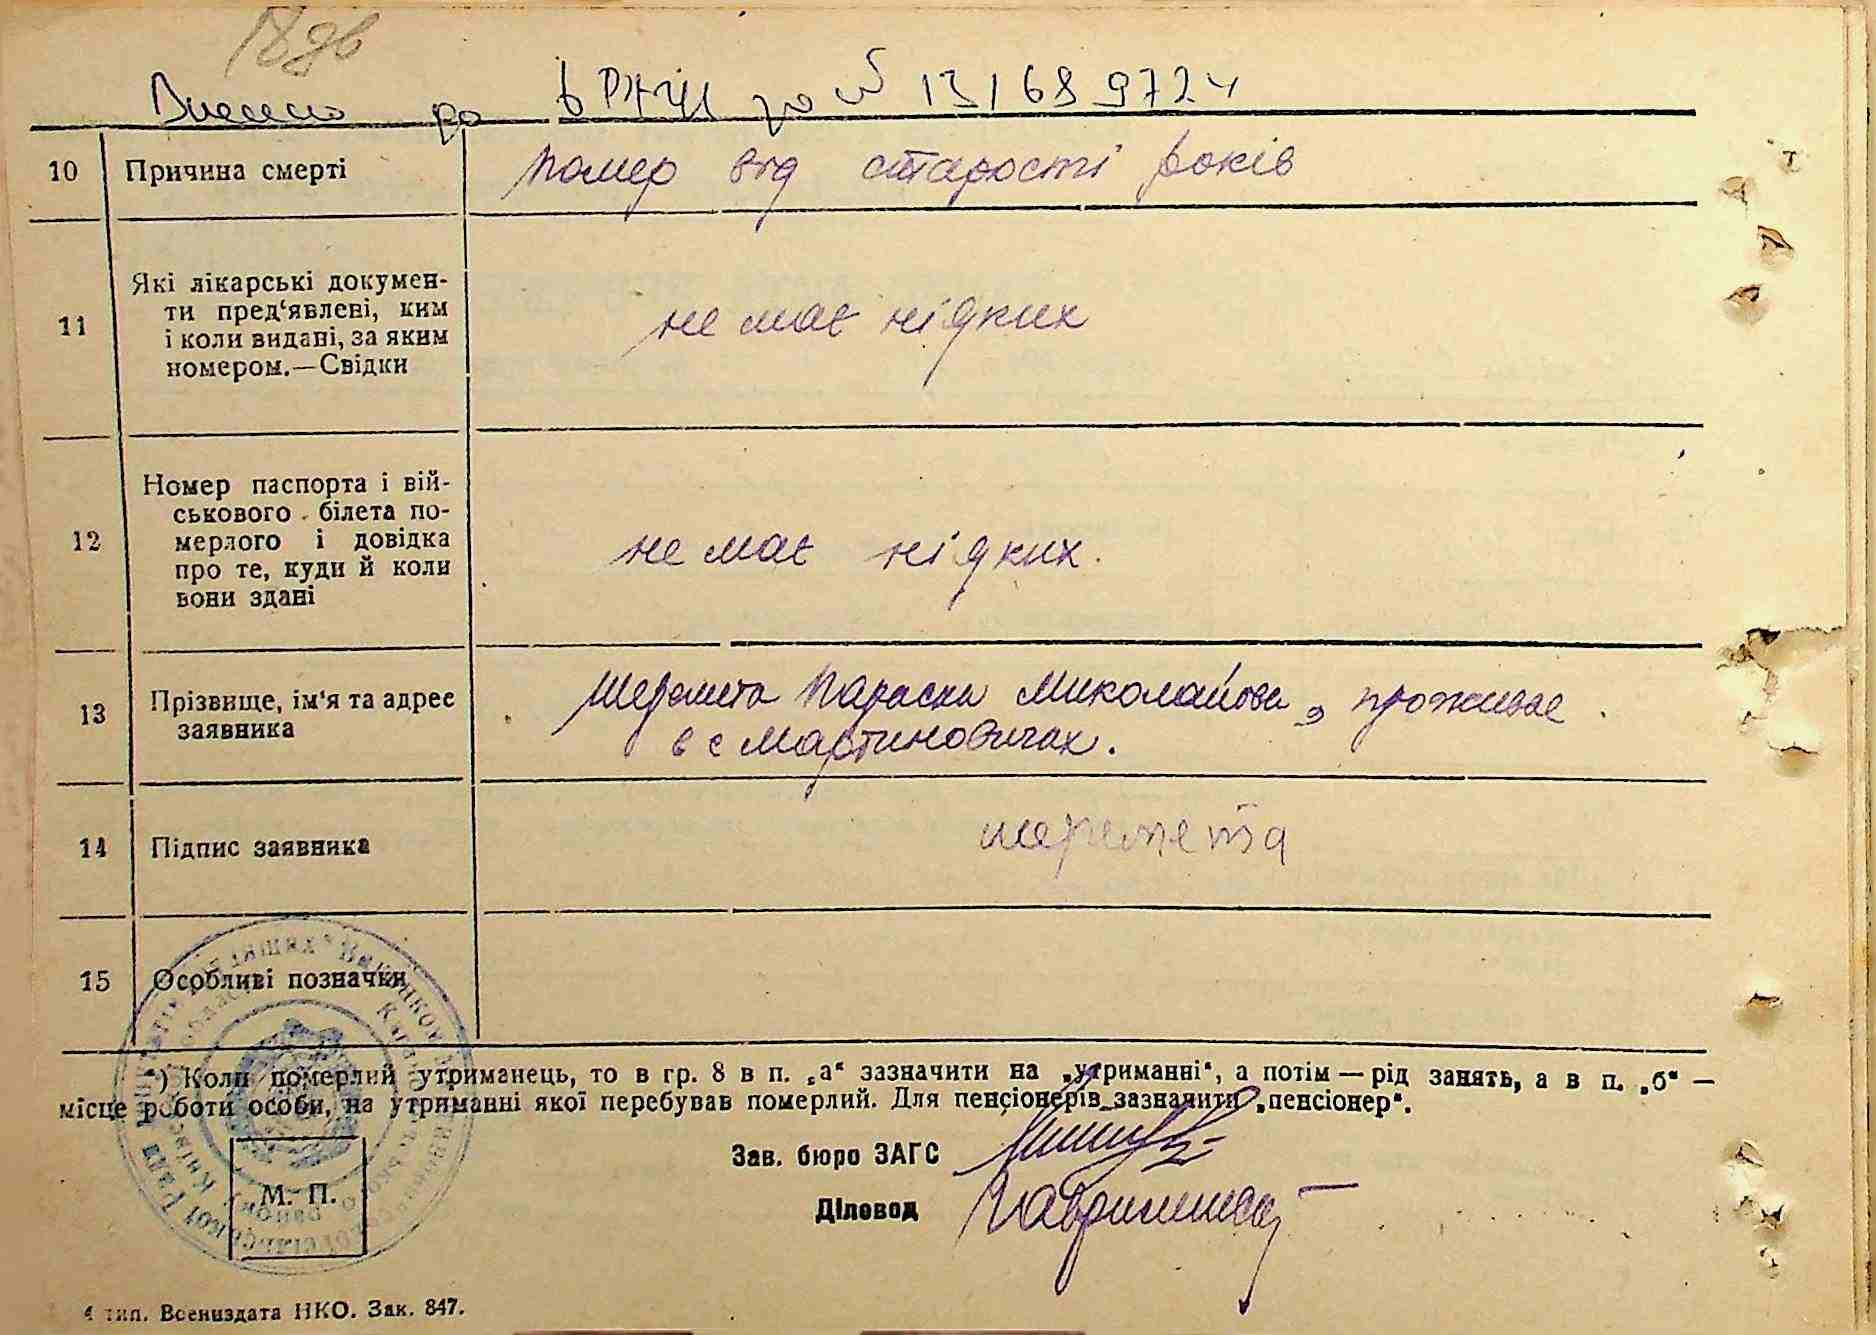 18 дв
Внесено до ДРАЦС за № 13168972
10 Причина смерті
помер від старости років
11 Які лікарські докумен-
ти пред‘явлені, ким
і коли видані, за яким
номером.—Свідки
не має ніяких
12 Номер паспорта і вій-
ськового білета по-
мерлого і довідка
про те, куди й коли
вони здані
не має ніяких.
13 Прізвище, ім‘я та адрес
заявника
Шеремета Параска Миколайовна, проживає
в с Мартиновичах.
14 Підпис заявника
шеремета
15 Особливі позначки
*) Коли померлий утриманець, то в гр. 8 в п. „а“ зазначити на „утриманні“, а потім — рід занять, а в п. „б“ —
місце роботи особи, на утриманні якої перебував померлий. Для пенсіонерів зазначити „пенсіонер“.
Зав. бюро ЗАГС
Діловод
М. П.
4 тип. Воениздата НКО. Зак. 847.